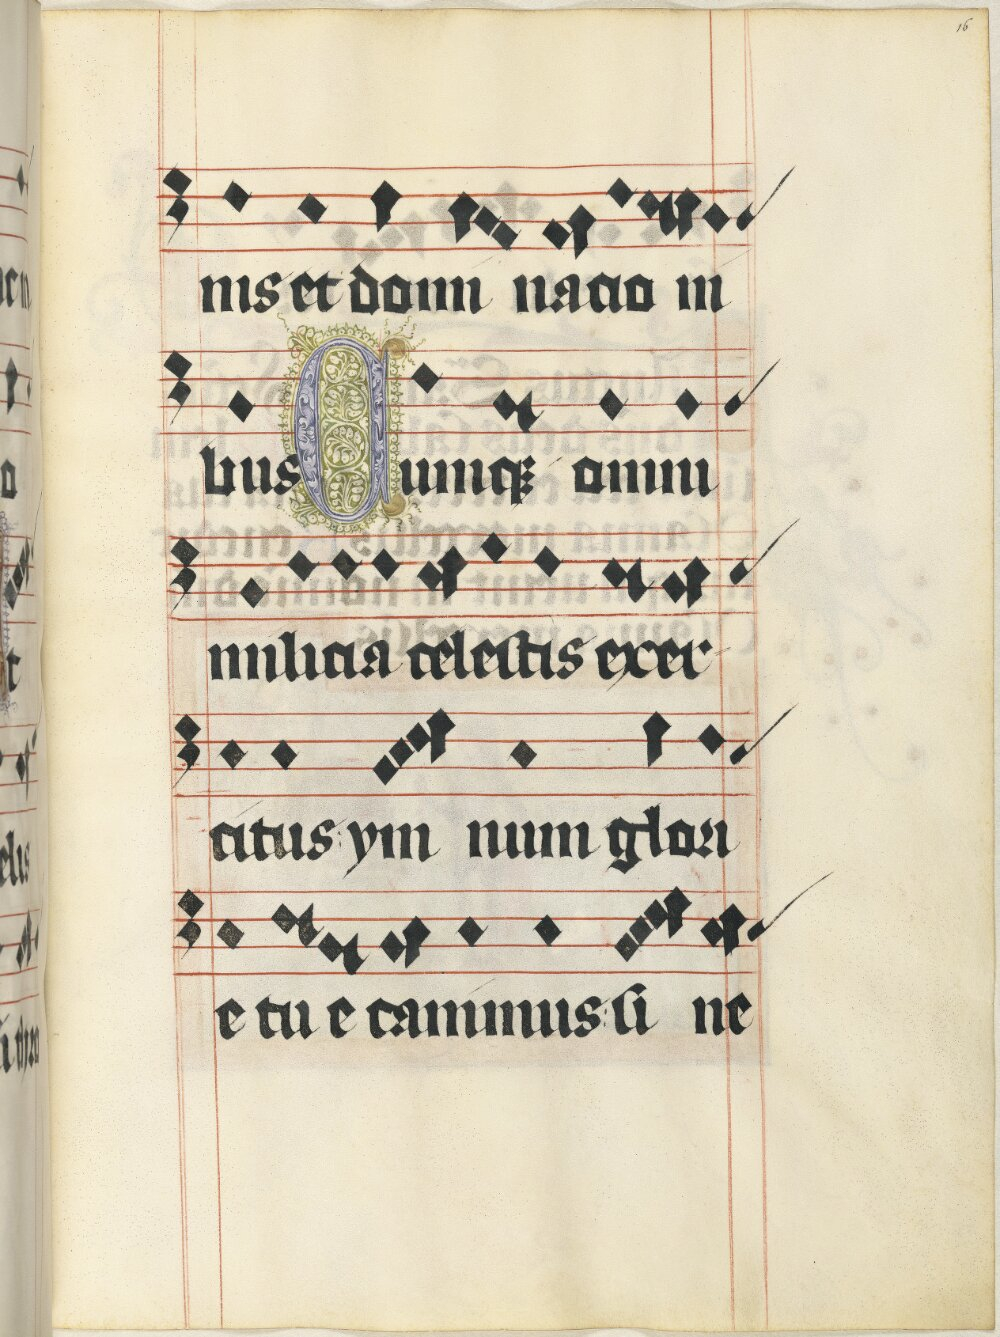 16
nis et domi nacio ni
bus Cumq; omni
milicia celestis exer-
citus ym num glori
e tu e canimus: si ne